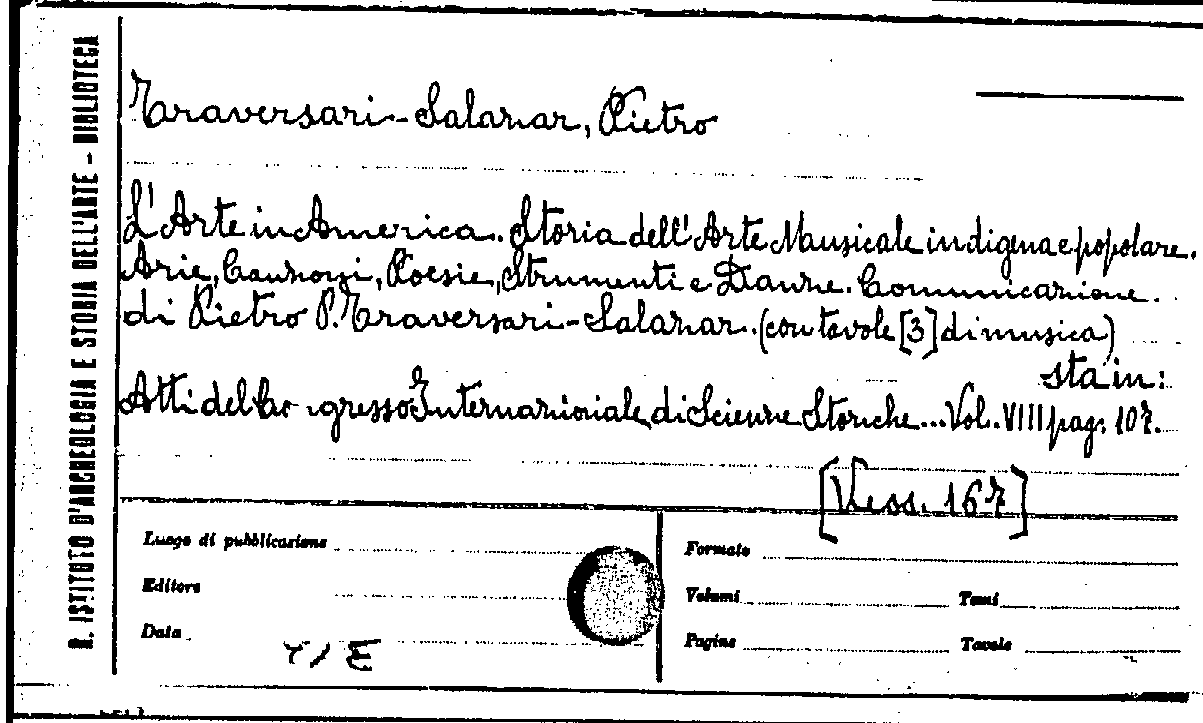 R. ISTITUTO D'ARCHEOLOGIA E STORIA DELL'ARTE - BIBLIOTECA
Traversari-Salazar, Pietro
L'Arte in America. Storia dell'Arte Musicale indigena e popolare.
Arie, Canzoni, Poesie, Strumenti e Danze. Comunicazione.
di Pietro P. Traversari-Salazar. (con tavole [3] di musica)
sta in:
Atti del Congresso Internazionale di Scienze Storiche... Vol. VIII pag. 107.
[Vess. 167]
Luogo di pubblicazione
Editore
Data
Formato
Volumi Tomi
Pagine Tavole